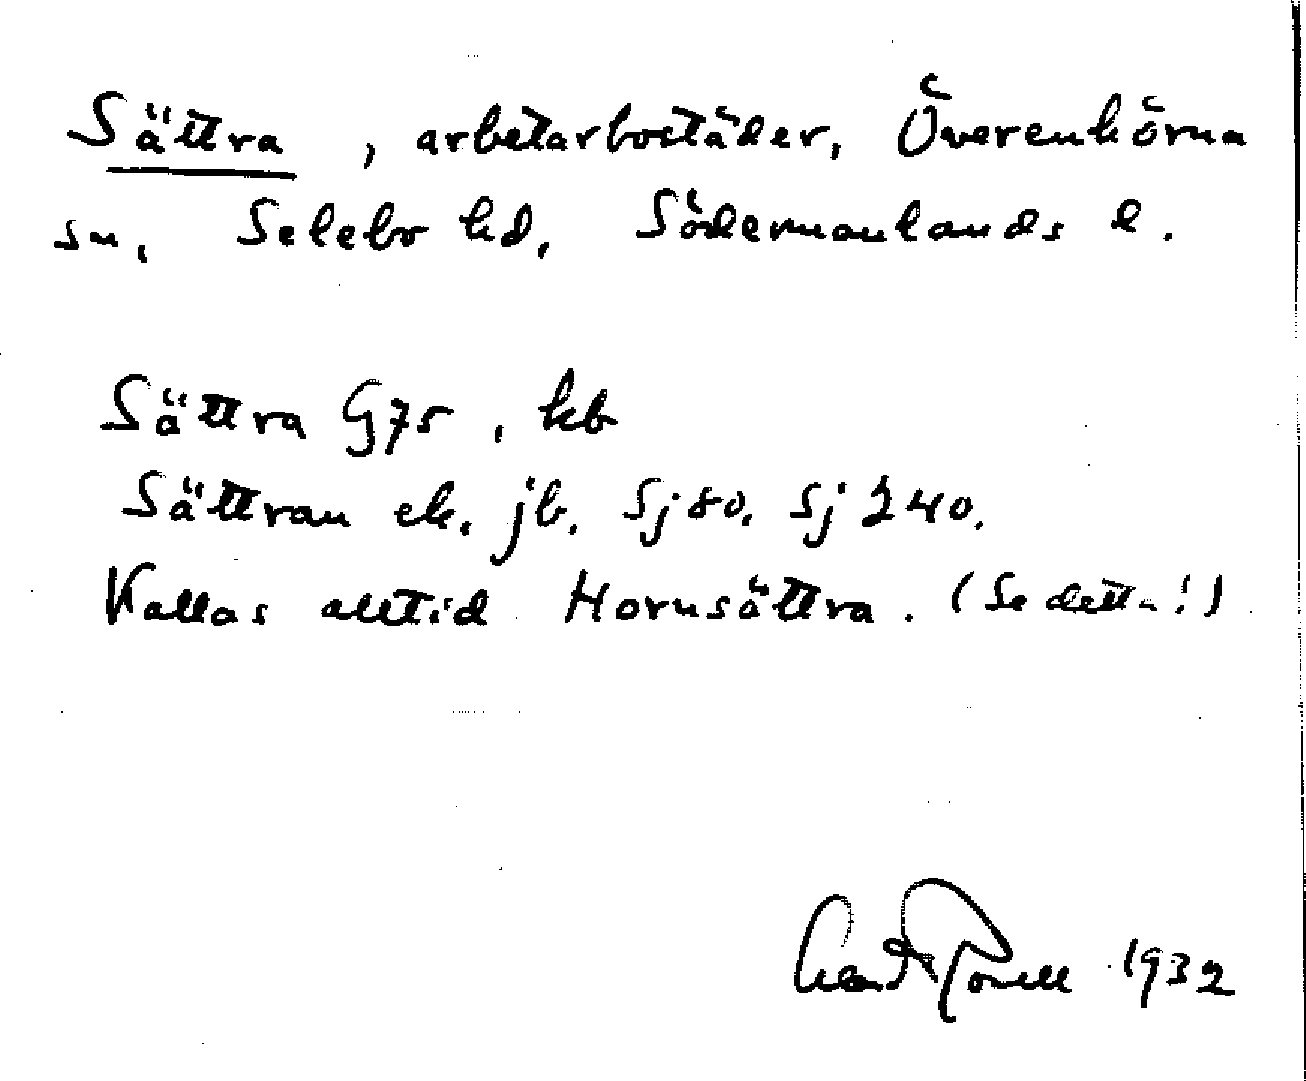 Sättra, arbetarbostäder, Överenhörna
sn, Selebo hd, Södermanlands l.
Sättra G75, kb
Sättran ek. jb. Sj 80. Sj 240.
Kallas alltid Hornsättra. (Se detta!)
1932